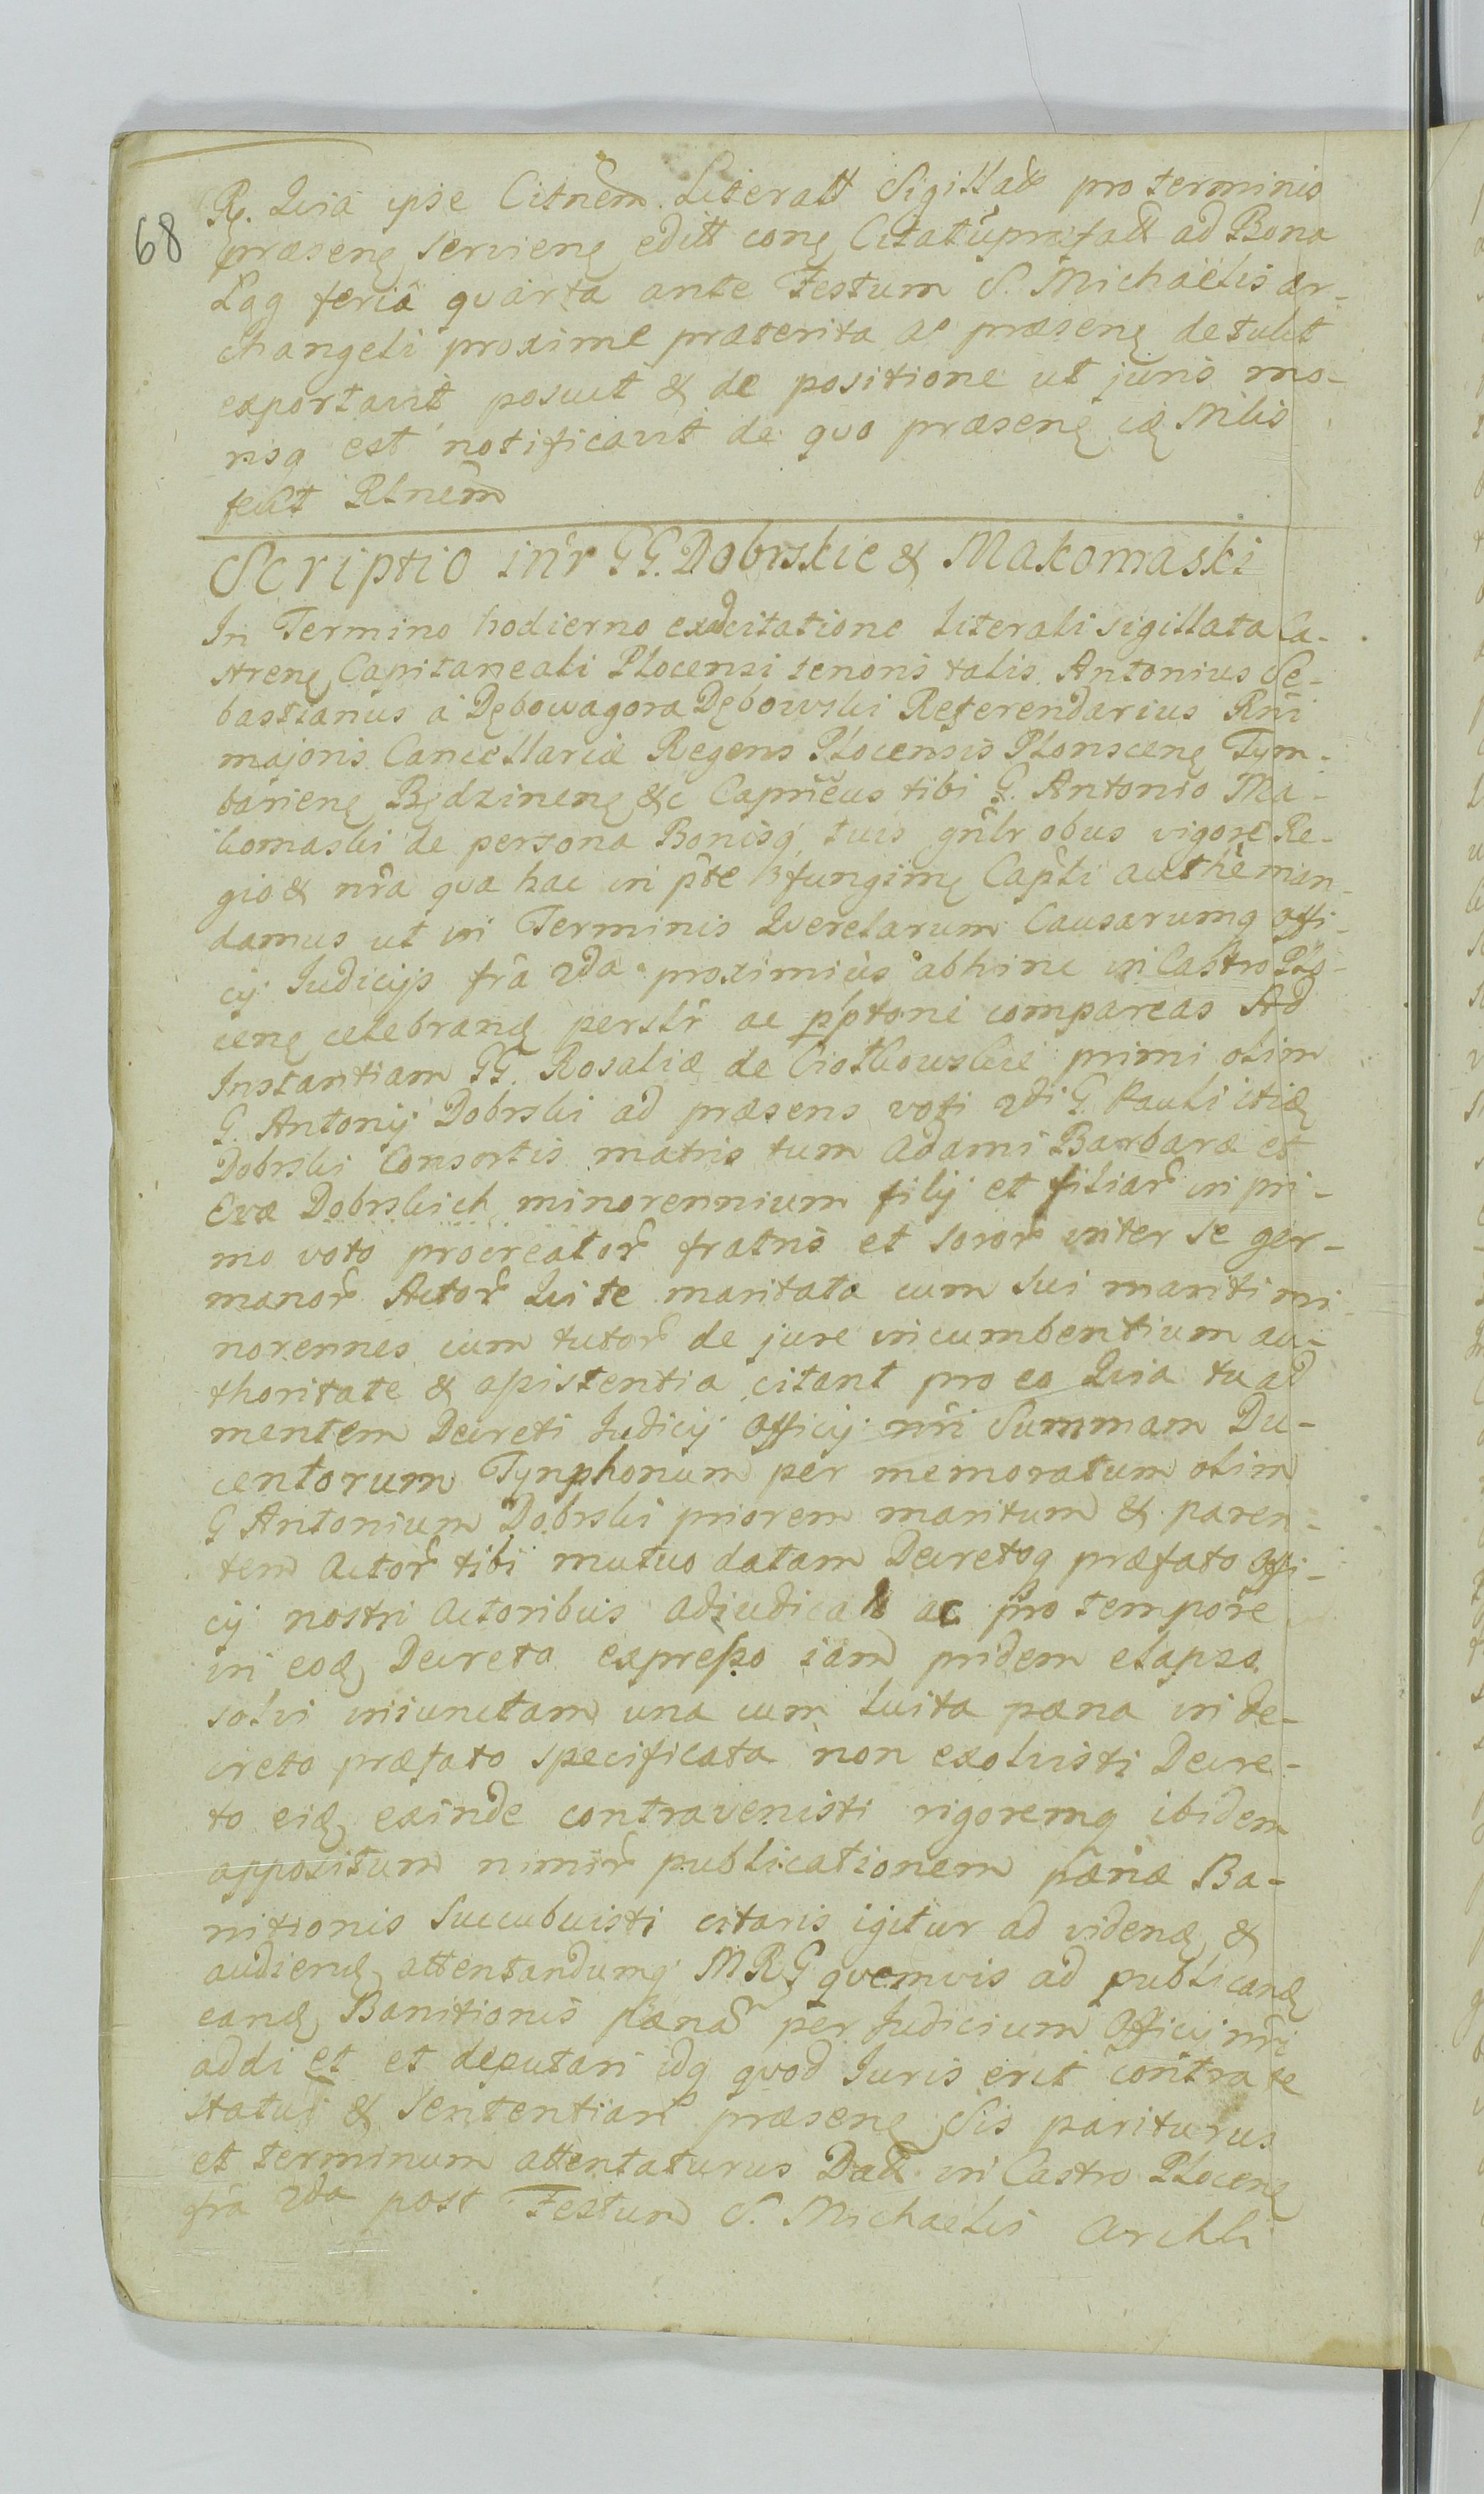 68
Rz. Quia ipse Citnem Literatt Sigillat pro terminis
præsenz servienz editt conz Citatu præfatt ad Bona
Łąg feria quarta ante Festum S. Michaëlis ar-
changeli proxime præterita ac præsenz detulit
exportavit posuit & de positione ut juris mo-
risq est notificavit de quo præsenz idz Mlis
fecit Rlnem
Scriptio intr GG. Dobrskie & Makomaski
In Termino hodierno ex citatione literali sigillata Ca-
strenz Capitaneali Plocensi tenoris talis Antonius Se-
bastianus a Dębowagora Dębowski Referendarius Rni
majoris Cancellariæ Regens Plocensis Plonscenz Tym-
barienz Będzinenz &c Capneus tibi G. Antonio Ma-
komaski de persona Bonisq tuis gnlr obus vigore Re-
gio & nra qua hac in pte fungimz Capli authe man-
damus ut in Terminis Querelarum Causarumq Offi-
cij Iudicijs fra 2da proximius abhinc in Castro Plo-
cenz celebrandz perslr ac pptorie compareas Ad
Instantiam GG. Rosaliæ de Ciołkowskie primi olim
G. Antonij Dobrski ad præsens voti 2di G. Pauli itidz
Dobrski Consortis matris tum Adami Barbaræ et
Evæ Dobrskich minorennium filij et filiar in pri-
mo voto procreator fratris et soror inter se ger-
manor Actor Qui te maritata cum sui mariti mi-
norennes cum tutor de jure incumbentium au-
thoritate & assistentia citant pro eo Quia tu ad
mentem Decreti Iudicij Officij nri Summam Du-
centorum Tynphonum per memoratum olim
G Antonium Dobrski priorem maritum & paren-
tem Actor tibi mutuo datam Decretoq præfato Offi-
cij nostri Actoribus adjudica ac pro tempore
in eodz Decreto expresso iam pridem elapso
solvi iniunctam una cum luita pæna in de-
creto præfato specificata non exolvisti Decre-
to eidz exinde contravenisti rigoremq ibidem
appositum nimir publicationem pænæ Ba-
nitionis succubuisti citaris igitur ad videndz &
audiendz attentandumq MRG quemvis ad publicandz
eandz Banitionis pænam per Iudicium Officij nri
addi et et deputari idq quod Iuris erit contra te
statui & sententiari præsenz Sis pariturus
et terminum attentaturus Datt in Castro Plocenz
fra 2da post Festum S. Michaelis Archli